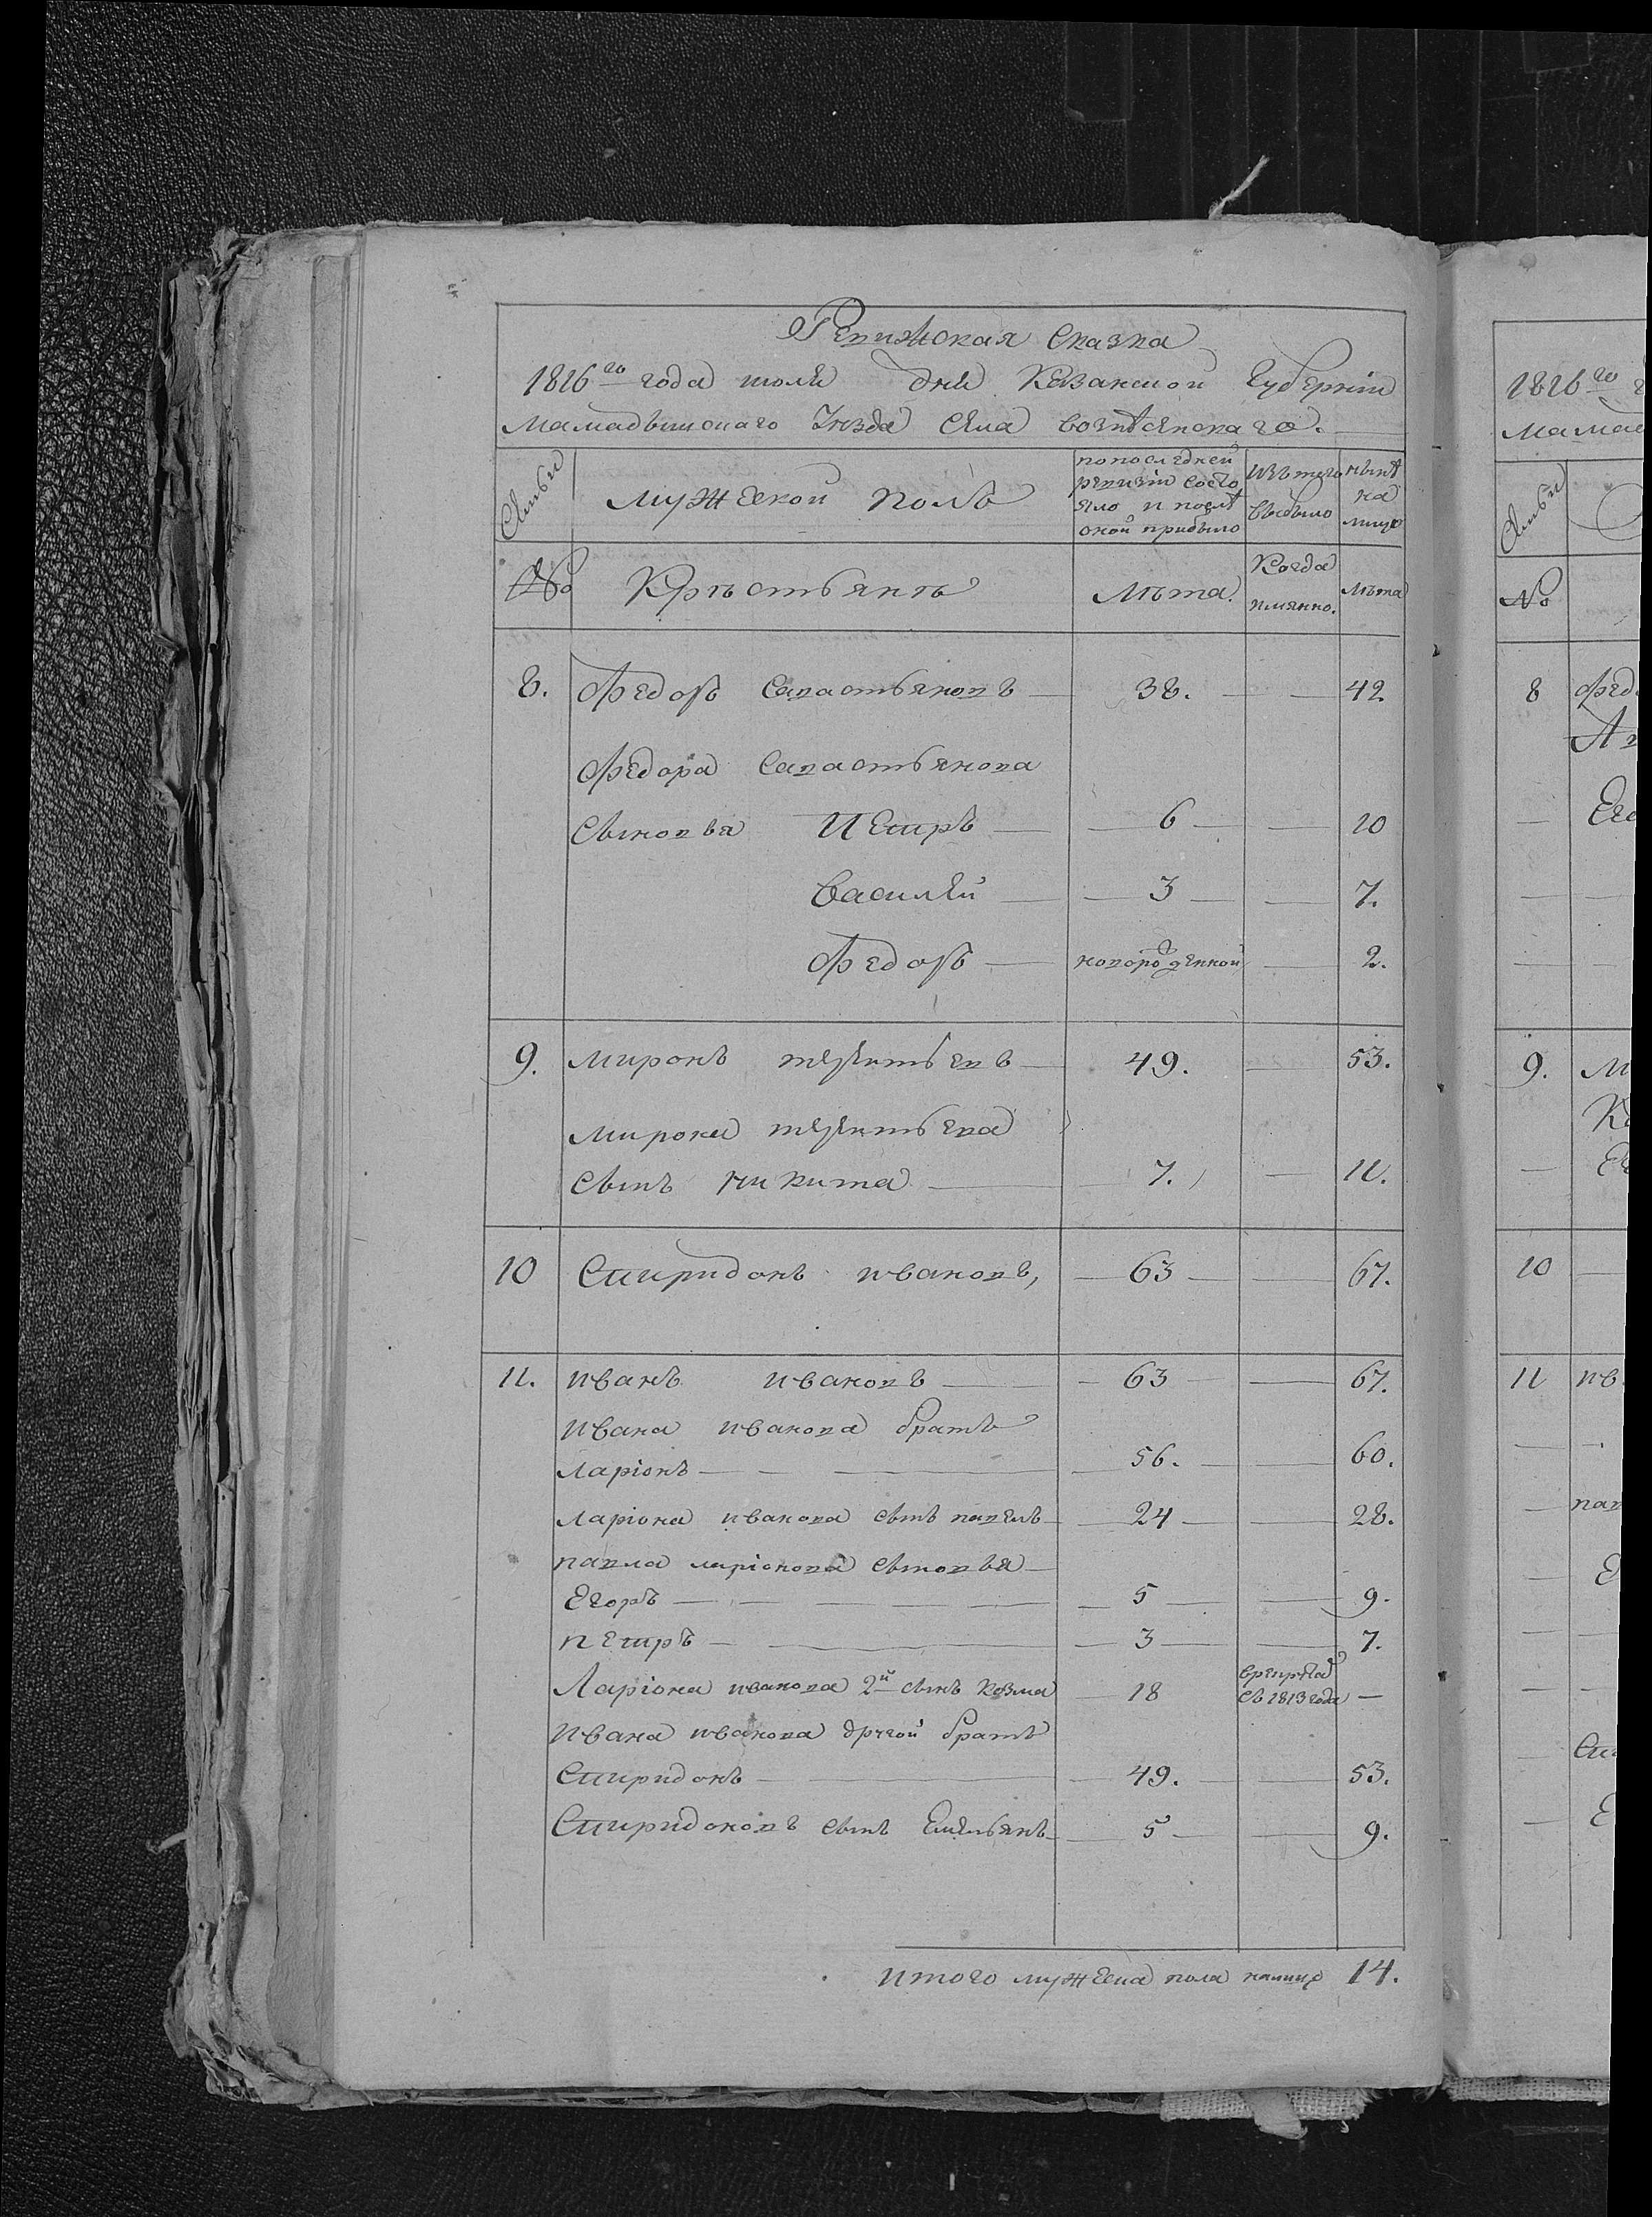 Ревижская сказка
1816го года июля дня Казанской Губерніи
мамадышскаго Уезда села вознѣсенскаго.
Семьи
мужеской полъ
по последней ревизіи состояло и послѣ оной прибыло
Изъ того выбыло
нынѣ на лицо
№ Крѣстьянѣ Лѣта. Когда имянно. Лѣта
8. Федоръ Савастьяновъ 38. 42
Федора Савастьянова
сыновья Петръ 6 10
Василей 3 7.
Федоръ новорожденной 2.
9. миронъ терентьевъ 49. 53.
мирона терентьева
сынъ никита 7. 11.
10 Спиридонъ ивановъ, 63 67.
11. иванъ ивановъ 63 67.
ивана иванова братъ
ларіонъ 56. 60.
ларіона иванова сынъ павелъ 24 28.
павла ларіонова сыновья
Егоръ 5 9.
петръ 3 7.
Ларіона иванова 2й сынъ козма 18 врекрута съ 1813 года —
ивана иванова другой братъ
Спиридонъ 49. 53.
Спиридоновъ сынъ Емельянъ 5 9.
итого мужеска пола налицо 14.
1816го
мамад
Семьи
№
8 Фед
9. М
10
11 ив
пав
Спи